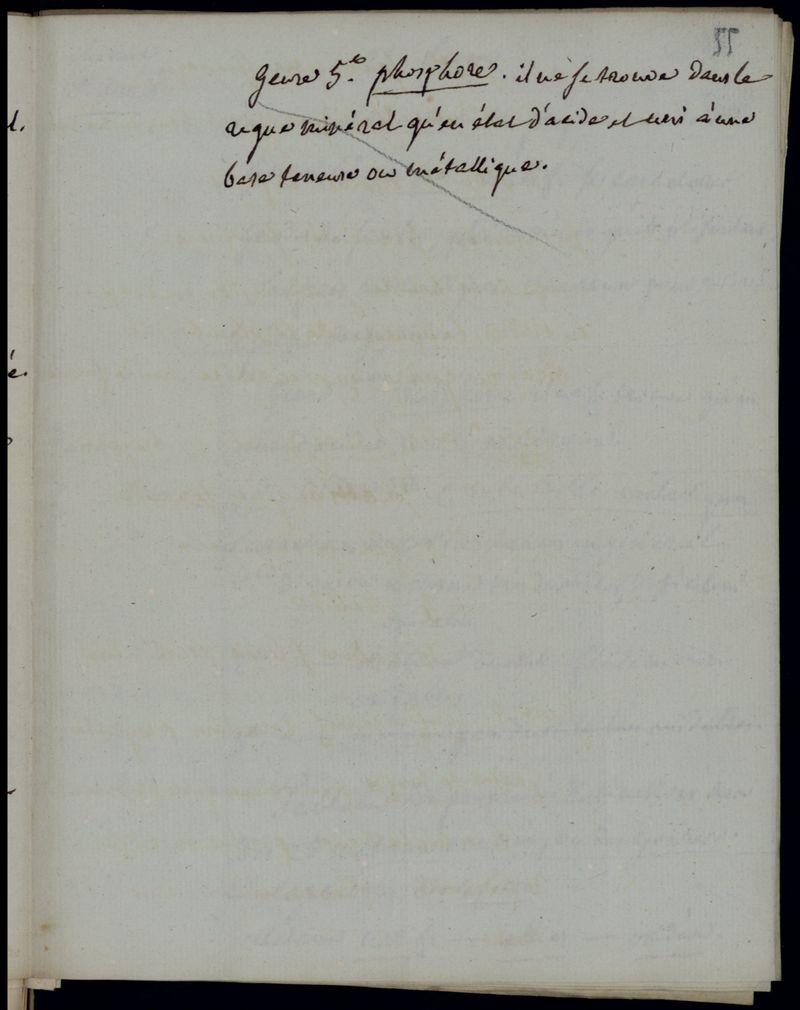 55
Genre 5.e phosphore. il ne se trouve dans le
regne minéral qu'en état d'acide et uni à une
base terreuse ou métallique.